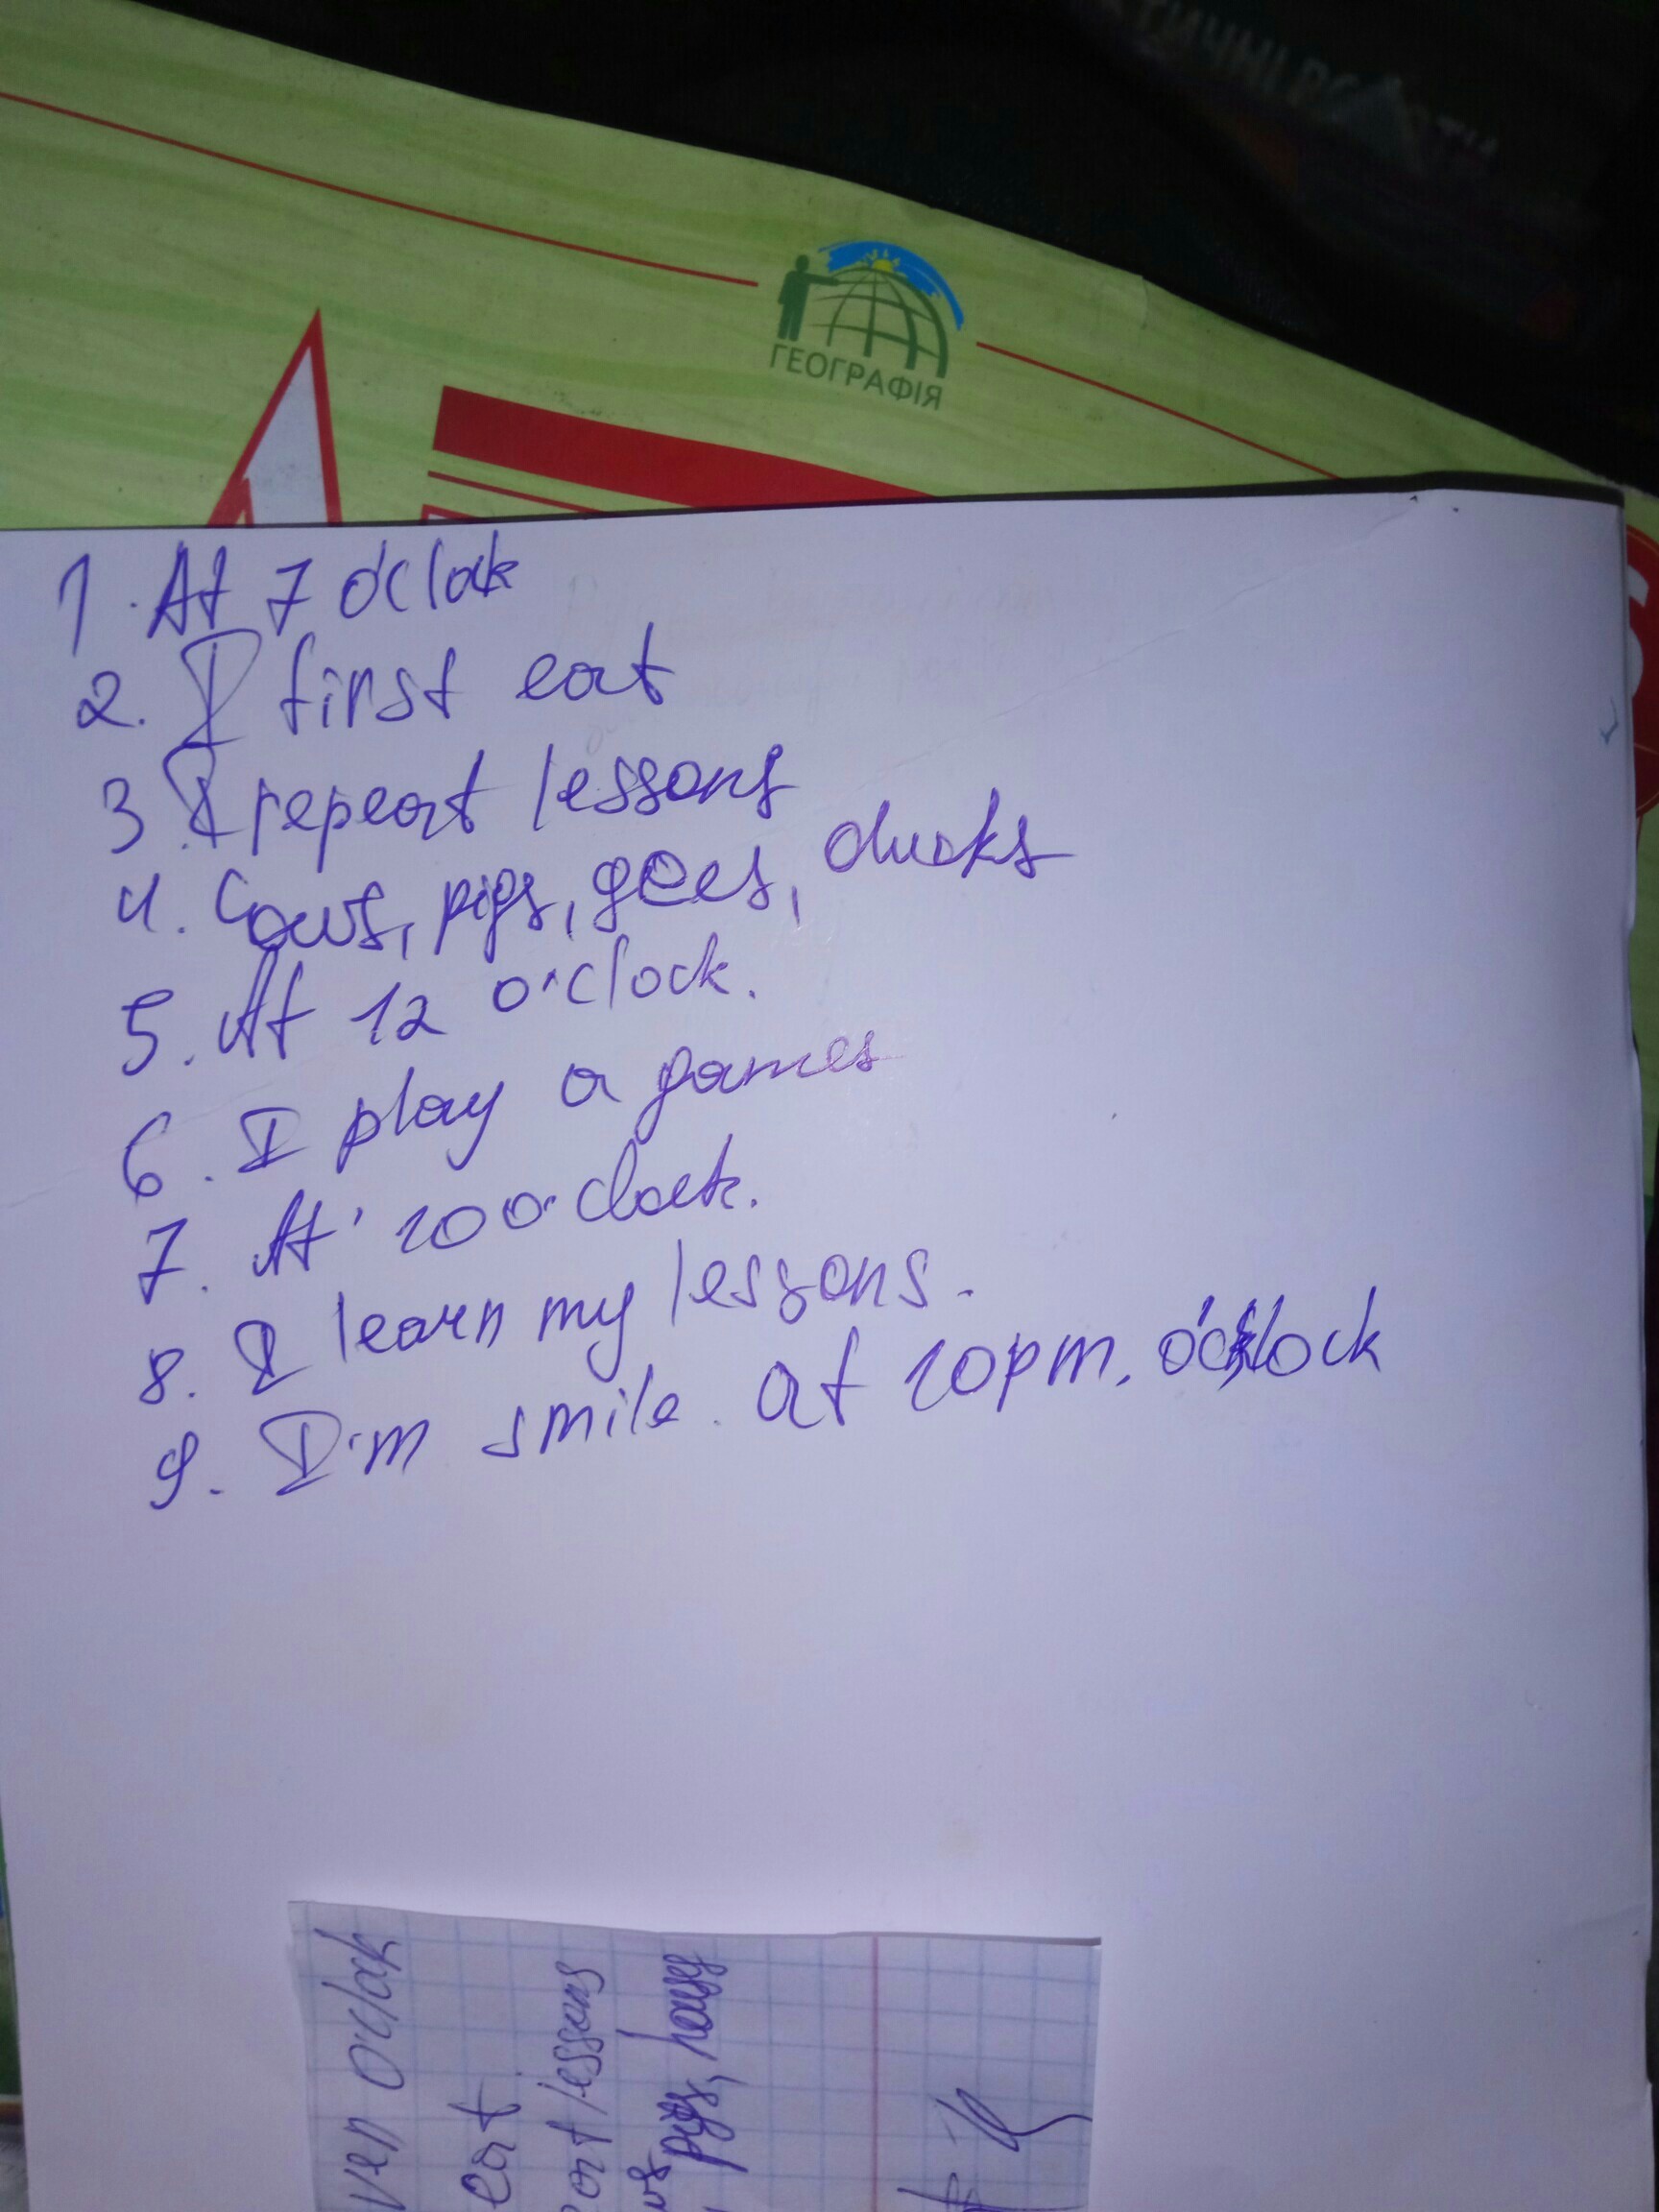 ГЕОГРАФІЯ
1. At 7 o'clok
2. I first eat
3. I repeat lessons
4. Cows, pigs, gees, ducks
5. At 12 o'clock.
6. I play a games
7. At 10 o'clock.
8. I learn my lessons.
9. I'm smile. at 10 pm. o'clock
ven o'clok
eat
lessons
pigs,